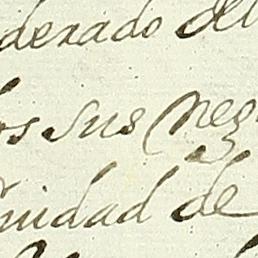 derado del
os sus neg
nidad de